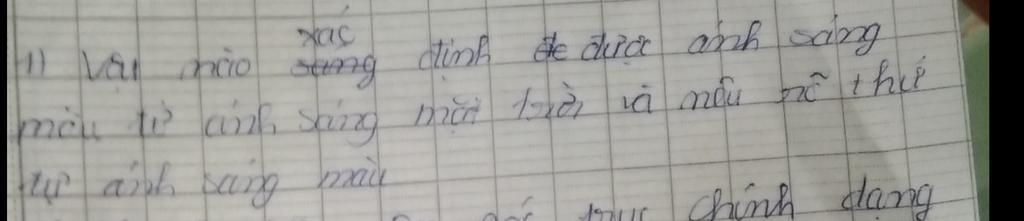 xác
1) Vật nào sang định đe được ánh sáng
màu từ ánh sáng mặt trời và nêu rõ thứ
tự ánh sáng màu
trục chính dang